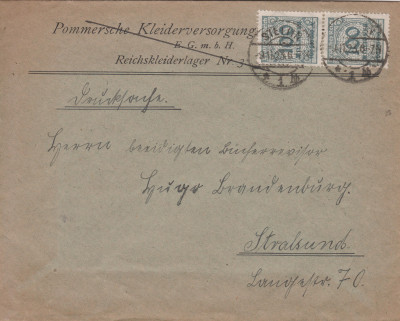 Pommersche Kleiderversorgung
E. G. m. b. H.
Reichskleiderlager Nr. 3
STETTIN
Drucksache.
Herrn beeidigten Bücherrevisor
Hugo Brandenburg.
Stralsund
Langestr. 70.